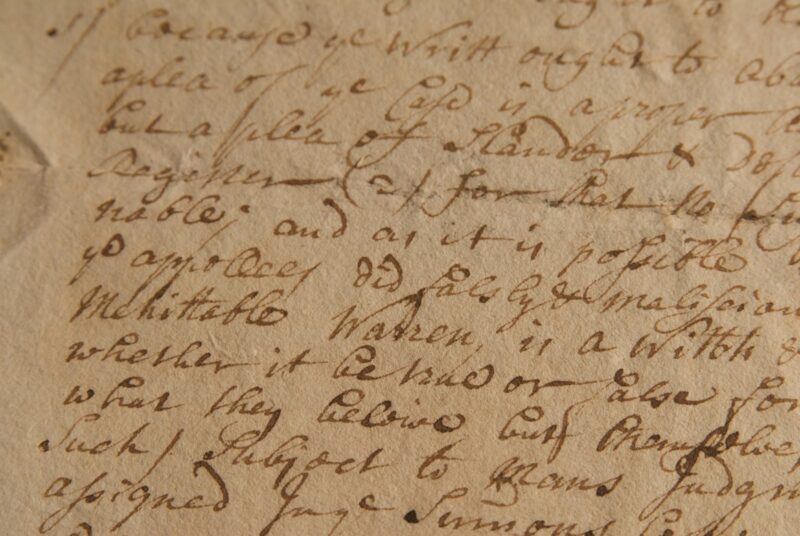 because ye Writt ought to aba
a plea of ye Case is a proper
but a plea of Slander & Def
Register (2) for that no
nable; and as it is possible
ye appellees did falsly & malision
Mehittable Warren, is a witth &
whether it be true or false for
what they beleive but themselve
Such) Subject to Mans Judgm
assigned Juge Summons